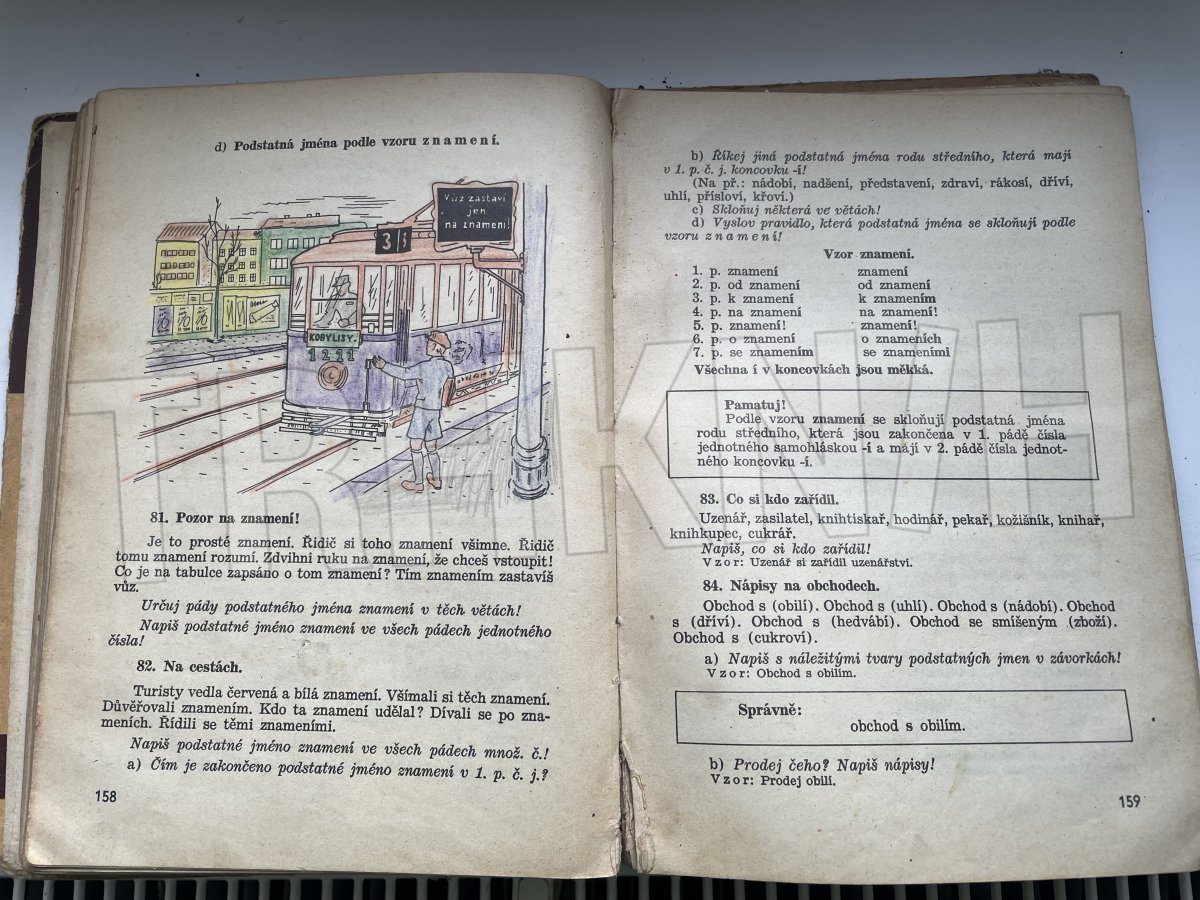 d) Podstatná jména podle vzoru znamení.
Vůz zastaví
jen
na znamení!
3
KOBYLISY.
81. Pozor na znamení!
Je to prosté znamení. Řidič si toho znamení všimne. Řidič
tomu znamení rozumí. Zdvihni ruku na znamení, že chceš vstoupit!
Co je na tabulce zapsáno o tom znamení? Tím znamením zastavíš
vůz.
Určuj pády podstatného jména znamení v těch větách!
Napiš podstatné jméno znamení ve všech pádech jednotného
čísla!
82. Na cestách.
Turisty vedla červená a bílá znamení. Všímali si těch znamení.
Důvěřovali znamením. Kdo ta znamení udělal? Dívali se po zna-
meních. Řídili se těmi znameními.
Napiš podstatné jméno znamení ve všech pádech množ. č.!
a) Čím je zakončeno podstatné jméno znamení v 1. p. č. j.?
158
b) Říkej jiná podstatná jména rodu středního, která mají
v 1. p. č. j. koncovku -í!
(Na př.: nádobí, nadšení, představení, zdraví, rákosí, dříví,
uhlí, přísloví, křoví.)
c) Skloňuj některá ve větách!
d) Vyslov pravidlo, která podstatná jména se skloňují podle
vzoru znamení!
Vzor znamení.
1. p. znamení znamení
2. p. od znamení od znamení
3. p. k znamení k znamením
4. p. na znamení na znamení!
5. p. znamení! znamení!
6. p. o znamení o znameních
7. p. se znamením se znameními
Všechna í v koncovkách jsou měkká.
Pamatuj!
Podle vzoru znamení se skloňují podstatná jména
rodu středního, která jsou zakončena v 1. pádě čísla
jednotného samohláskou -í a mají v 2. pádě čísla jednot-
ného koncovku -í.
83. Co si kdo zařídil.
Uzenář, zasilatel, knihtiskař, hodinář, pekař, kožišník, knihař,
knihkupec, cukrář.
Napiš, co si kdo zařídil!
Vzor: Uzenář si zařídil uzenářství.
84. Nápisy na obchodech.
Obchod s (obilí). Obchod s (uhlí). Obchod s (nádobí). Obchod
s (dříví). Obchod s (hedvábí). Obchod se smíšeným (zboží).
Obchod s (cukroví).
a) Napiš s náležitými tvary podstatných jmen v závorkách!
Vzor: Obchod s obilím.
Správně:
obchod s obilím.
b) Prodej čeho? Napiš nápisy!
Vzor: Prodej obilí.
159